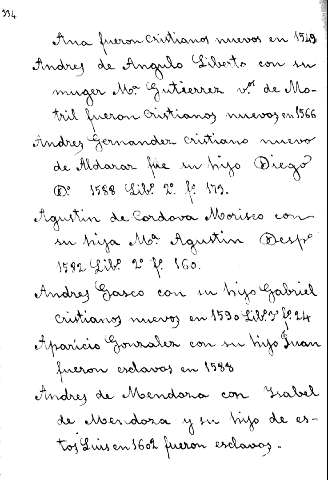 334
Ana fueron cristianos nuevos en 1549
Andres de Angulo Liberto con su
muger Mª Gutierrez v.os de Mo-
tril fueron cristianos nuevos en 1566
Andres Hernandez cristiano nuevo
de Aldarar fue su hijo Diego
Dº 1588 Libº 2º fº 179.
Agustin de Cordova Morisco con
su hija Mª Agustin Despº
1582 Libº 2º fº 160.
Andres Gasco con su hijo Gabriel
cristianos nuevos en 1590 Libº 3º fº 24
Aparicio Gonzalez con su hijo Juan
fueron esclavos en 1588
Andres de Mendoza con Isabel
de Mendoza y su hijo de es-
tos Luis en 1602 fueron esclavos.